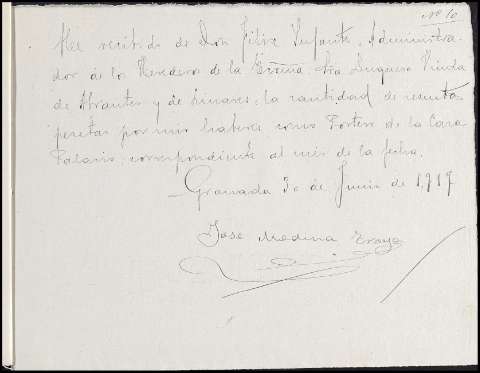 Nº 10
He recibido de Don Felipe Infante, Administra-
dor de los Herederos de la Excma. Sra. Duquesa Viuda
de Abrantes y de Linares, la cantidad de
pesetas por mis haberes como Portero de la Casa
Palacio, correspondiente al mes de la fecha.
Granada 30 de Junio de 1,917
José Medina